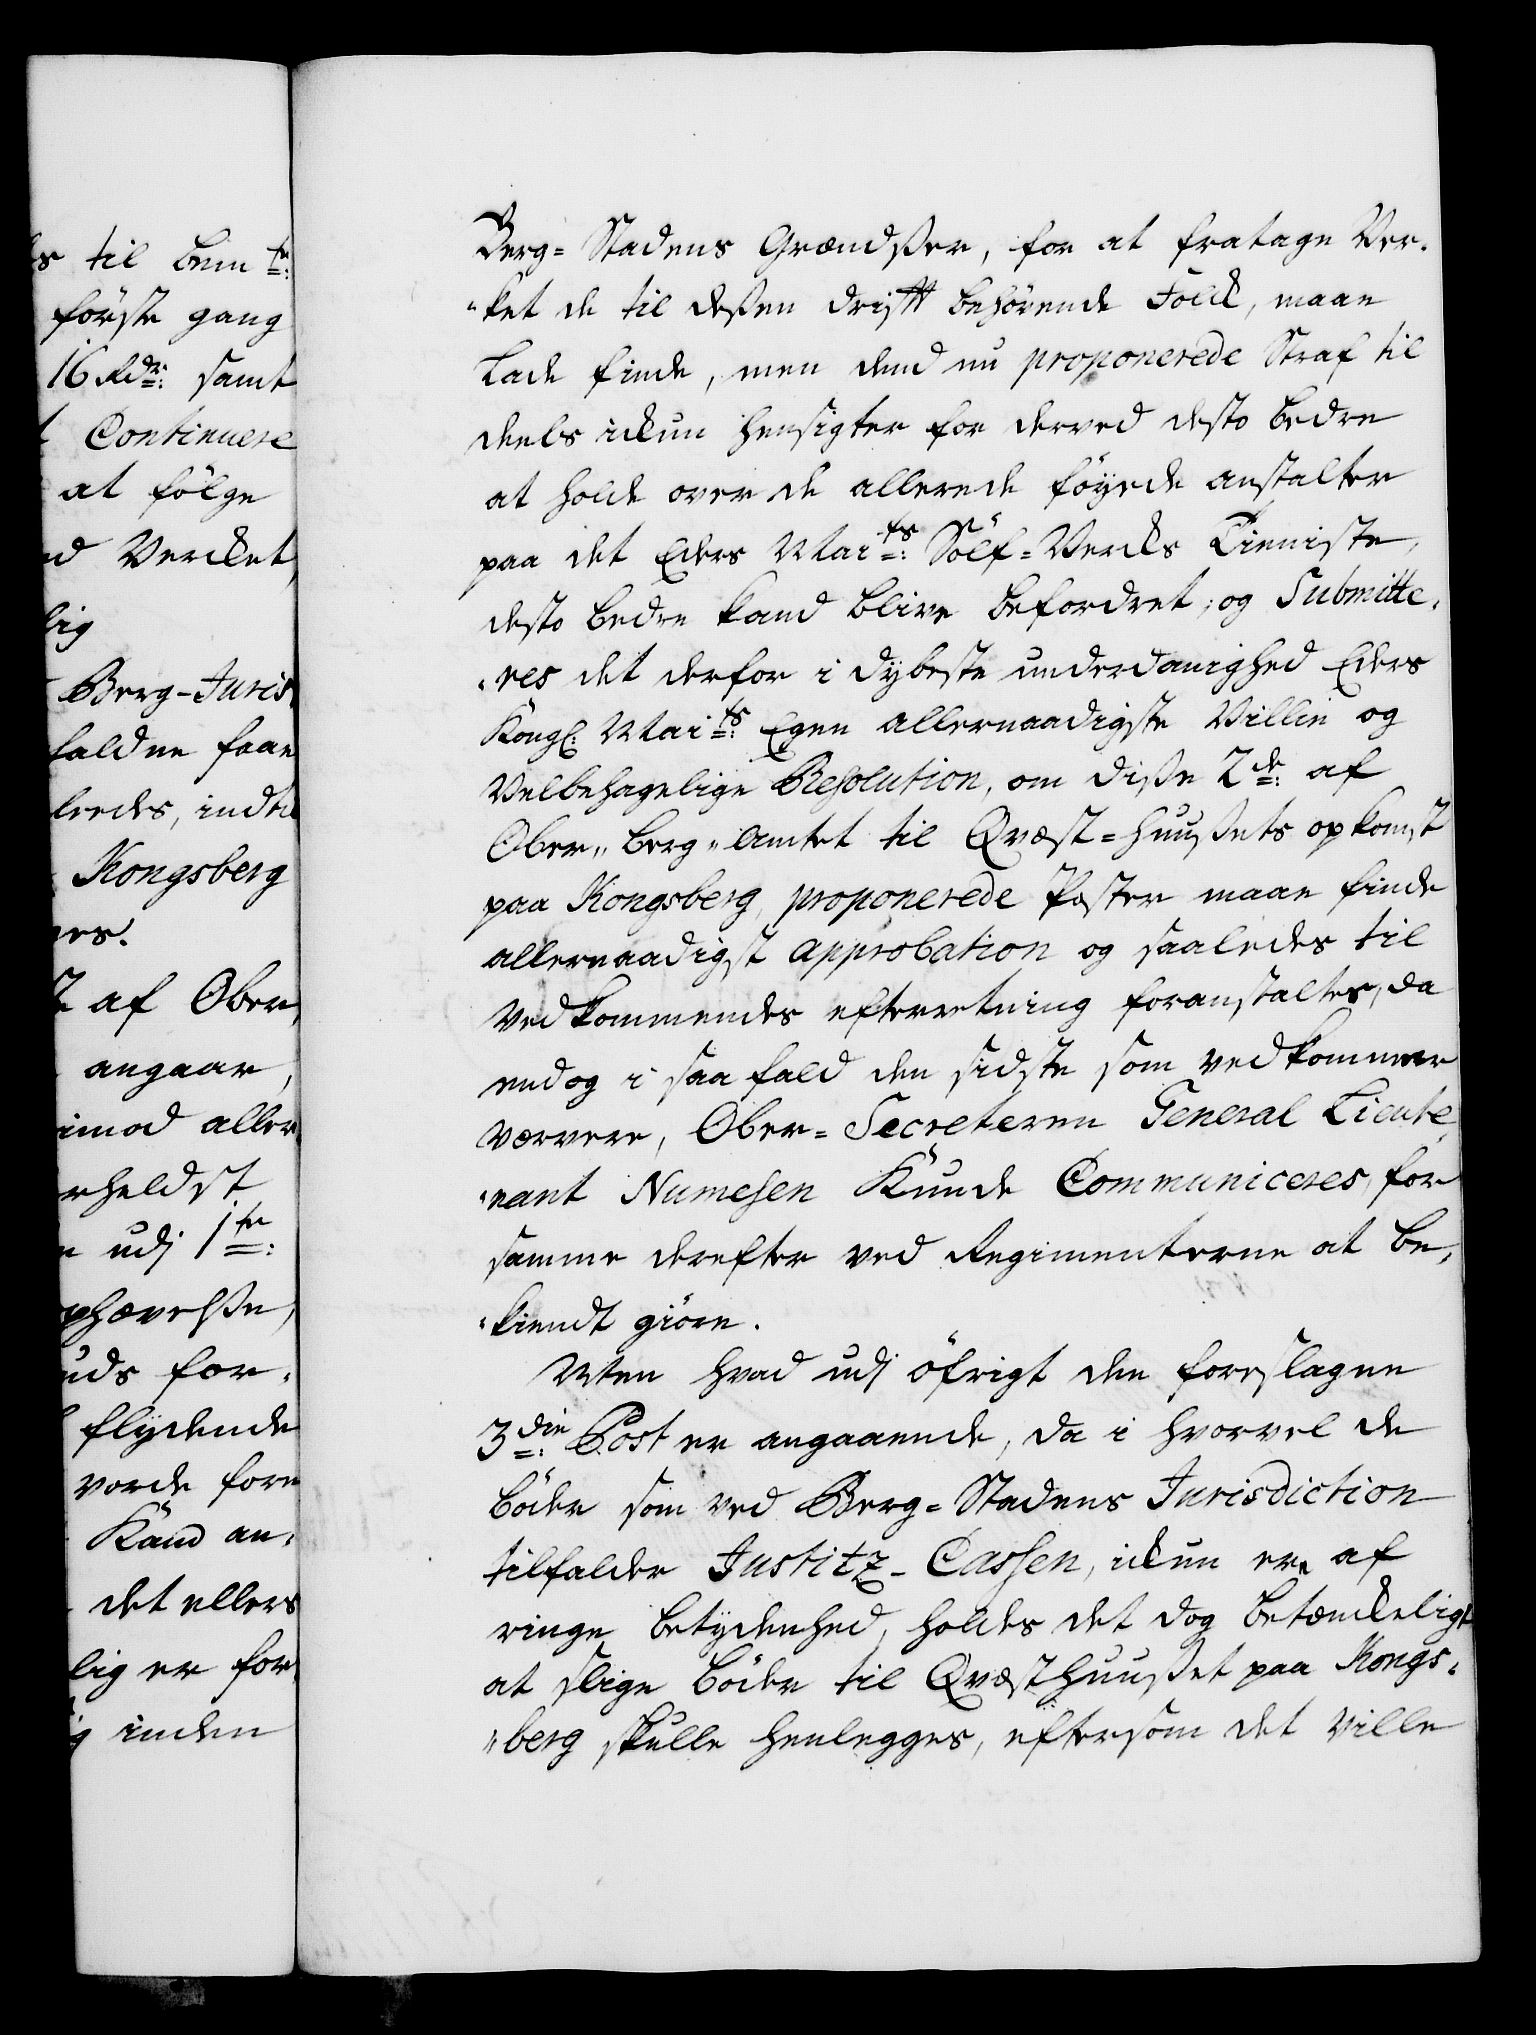 s til bem te:
förste gang
16 Rdr: samt
Continuere
at fölge
d Vercket,
lig
Berg-Juris
faldne faae
leedes, indtil
Kongsberg
res.
t af Ober,
angaar,
imod aller
rheldst
udj 1te:
phævelße,
uds for-
flydende
vorde fore
Kand an-
det ellers
lig er for
g inden
Berg- Stadens Grændsser, for at fratage Ver-
"ket de til deßen drifft behörende Folck, maae
lade finde, men dend nu proponerede Straf til
deels ickun hensigter for derved desto bedre
at holde over de allerede föyede anstalter
paa det Eders Maits: Sölf-Vercks Tieniste,
desto bedre kand blive befordret; og Submitte-
"res det derfor i dybeste underdanighed Eders
Kongl: Maits: Egen allernaadigste Villie og
Velbehagelige Resolution, om diße 2de: af
Ober" berg" Amtet til Qvæst-huußets opkomst
paa Kongsberg, proponerede Poster maae finde
allernaadigst approbation og saaledes til
vedkommendes efterretning foranstaltes, da
endog i saa fald den sidste som vedkommer
værvere, Ober-Secreteren General Lieute
"nant Numesen Kunde Communiceres, for
samme derefter ved Regimenterne at be-
"kiendt giöre.
Men hvad udj öfrigt den foreslagne
3die: Post er angaaende, da i hvorvel de
böder som ved Berg-Stadens Jurisdiction
tilfalder Justitz-Cassen, ickun ere af
ringe betydenhed, holdes det dog betænckeligt
at slige böder til Qvæsthuußet paa Kongs-
"berg skulle henlegges, eftersom det ville